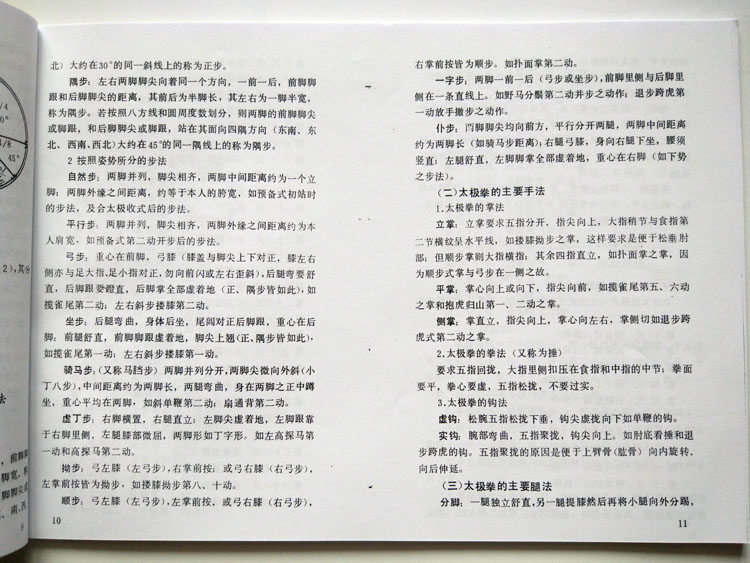 /4
/8
45°
2），其分
法
，前脚脚
脚宽，
脚脚尖
、南、西
9
北）大约在30°的同一斜线上的称为正步。
隅步：左右两脚脚尖向着同一个方向，一前一后，前脚脚
跟和后脚脚尖的距离，其前后为半脚长，其左右为一脚半宽，
称为隅步。若按照八方线和圆周度数划分，则两脚的前脚脚尖
或脚跟，和后脚脚尖或脚跟，站在其面向四隅方向（东南、东
北、西南、西北）大约在45°的同一隅线上的称为隅步。
2 按照姿势所分的步法
自然步：两脚并列，脚尖相齐，两脚中间距离约为一个立
脚；两脚外缘之间距离，约等于本人的胯宽，如预备式初站时
的步法，及合太极收式后的步法。
平行步：两脚并列，脚尖相齐，两脚外缘之间距离约为本
人肩宽，如预备式第二动开步后的步法。
弓步：重心在前，弓膝（膝盖与脚尖上下对正，膝左右
侧亦与足大指、足小指对正，勿向前闪或左右歪斜），后腿弯要舒
直，后脚跟要蹬直，后脚掌全部虚着地（正、隅步皆如此），如
揽雀尾第二动；左右斜步搂膝第二动。
坐步：后腿弯曲，身体后坐，尾闾对正后脚跟，重心在后
脚；前腿舒直，前脚脚跟虚着地，脚尖上翘（正、隅步皆如此），
如揽雀尾第一动；左右斜步搂膝第一动。
骑马步：（又称马裆步）两脚并列分开，两脚尖微向外斜（小
丁八步），中间距离约为两脚长，两腿弯曲，身在两脚之正中蹲
坐，重心平均在两脚，如斜单鞭第二动；扇通背第二动。
虚丁步：右脚横置，右腿直立；左脚尖虚着地，左脚跟靠
于右脚里侧，左腿膝部微屈，两脚形如丁字形。如左高探马第
一动和高探马第二动。
拗步：弓左膝（左弓步），右掌前按；或弓右膝（右弓步），
左掌前按皆为拗步，如搂膝拗步第八、十动。
顺步：弓左膝（左弓步），左掌前按，或弓右膝（右弓步），
10
右掌前按皆为顺步。如扑面掌第二动。
一字步：两脚一前一后（弓步或坐步），前脚里侧与后脚里
侧在一条直线上。如野马分鬃第二动并步之动作；退步跨虎第
一动放手撤步之动作。
仆步：两脚脚尖均向前方，平行分开两腿，两脚中间距离
约为两脚长（如骑马步距离）；右腿弓膝，身向右腿下坐，腰须
竖直；左腿舒直，左脚脚掌全部虚着地，重心在右脚（如下势
之步法）。
（二）太极拳的主要手法
1.太极拳的掌法
立掌：立掌要求五指分开、指尖向上，大指稍节与食指第
二节横纹呈水平线，如搂膝拗步之掌，这样要求是便于松垂肘
部；但顺步掌则大指横指；其余四指直立，如扑面掌之掌，因
为顺步式掌与弓步在一侧之故。
平掌：掌心向上或向下，指尖向前，如揽雀尾第五、六动
之掌和抱虎归山第一、二动之掌。
侧掌：掌直立，指尖向上，掌心向左右，掌侧切如退步跨
虎式第二动之掌。
2.太极拳的拳法（又称为捶）
要求五指回拢，大指里侧扣压在食指和中指的中节；拳面
要平，拳心要虚，五指松拢，不要过实。
3.太极拳的钩法
虚钩：松腕五指松拢下垂，钩尖虚拢向下如单鞭的钩。
实钩：腕部弯曲，五指聚拢，钩尖向上。如肘底看捶和退
步跨虎的钩。五指聚拢的原因是便于上臂骨（肱骨）向内旋转、
向后伸延。
（三）太极拳的主要腿法
分脚：一腿独立舒直，另一腿提膝然后再将小腿向外分踢，
11